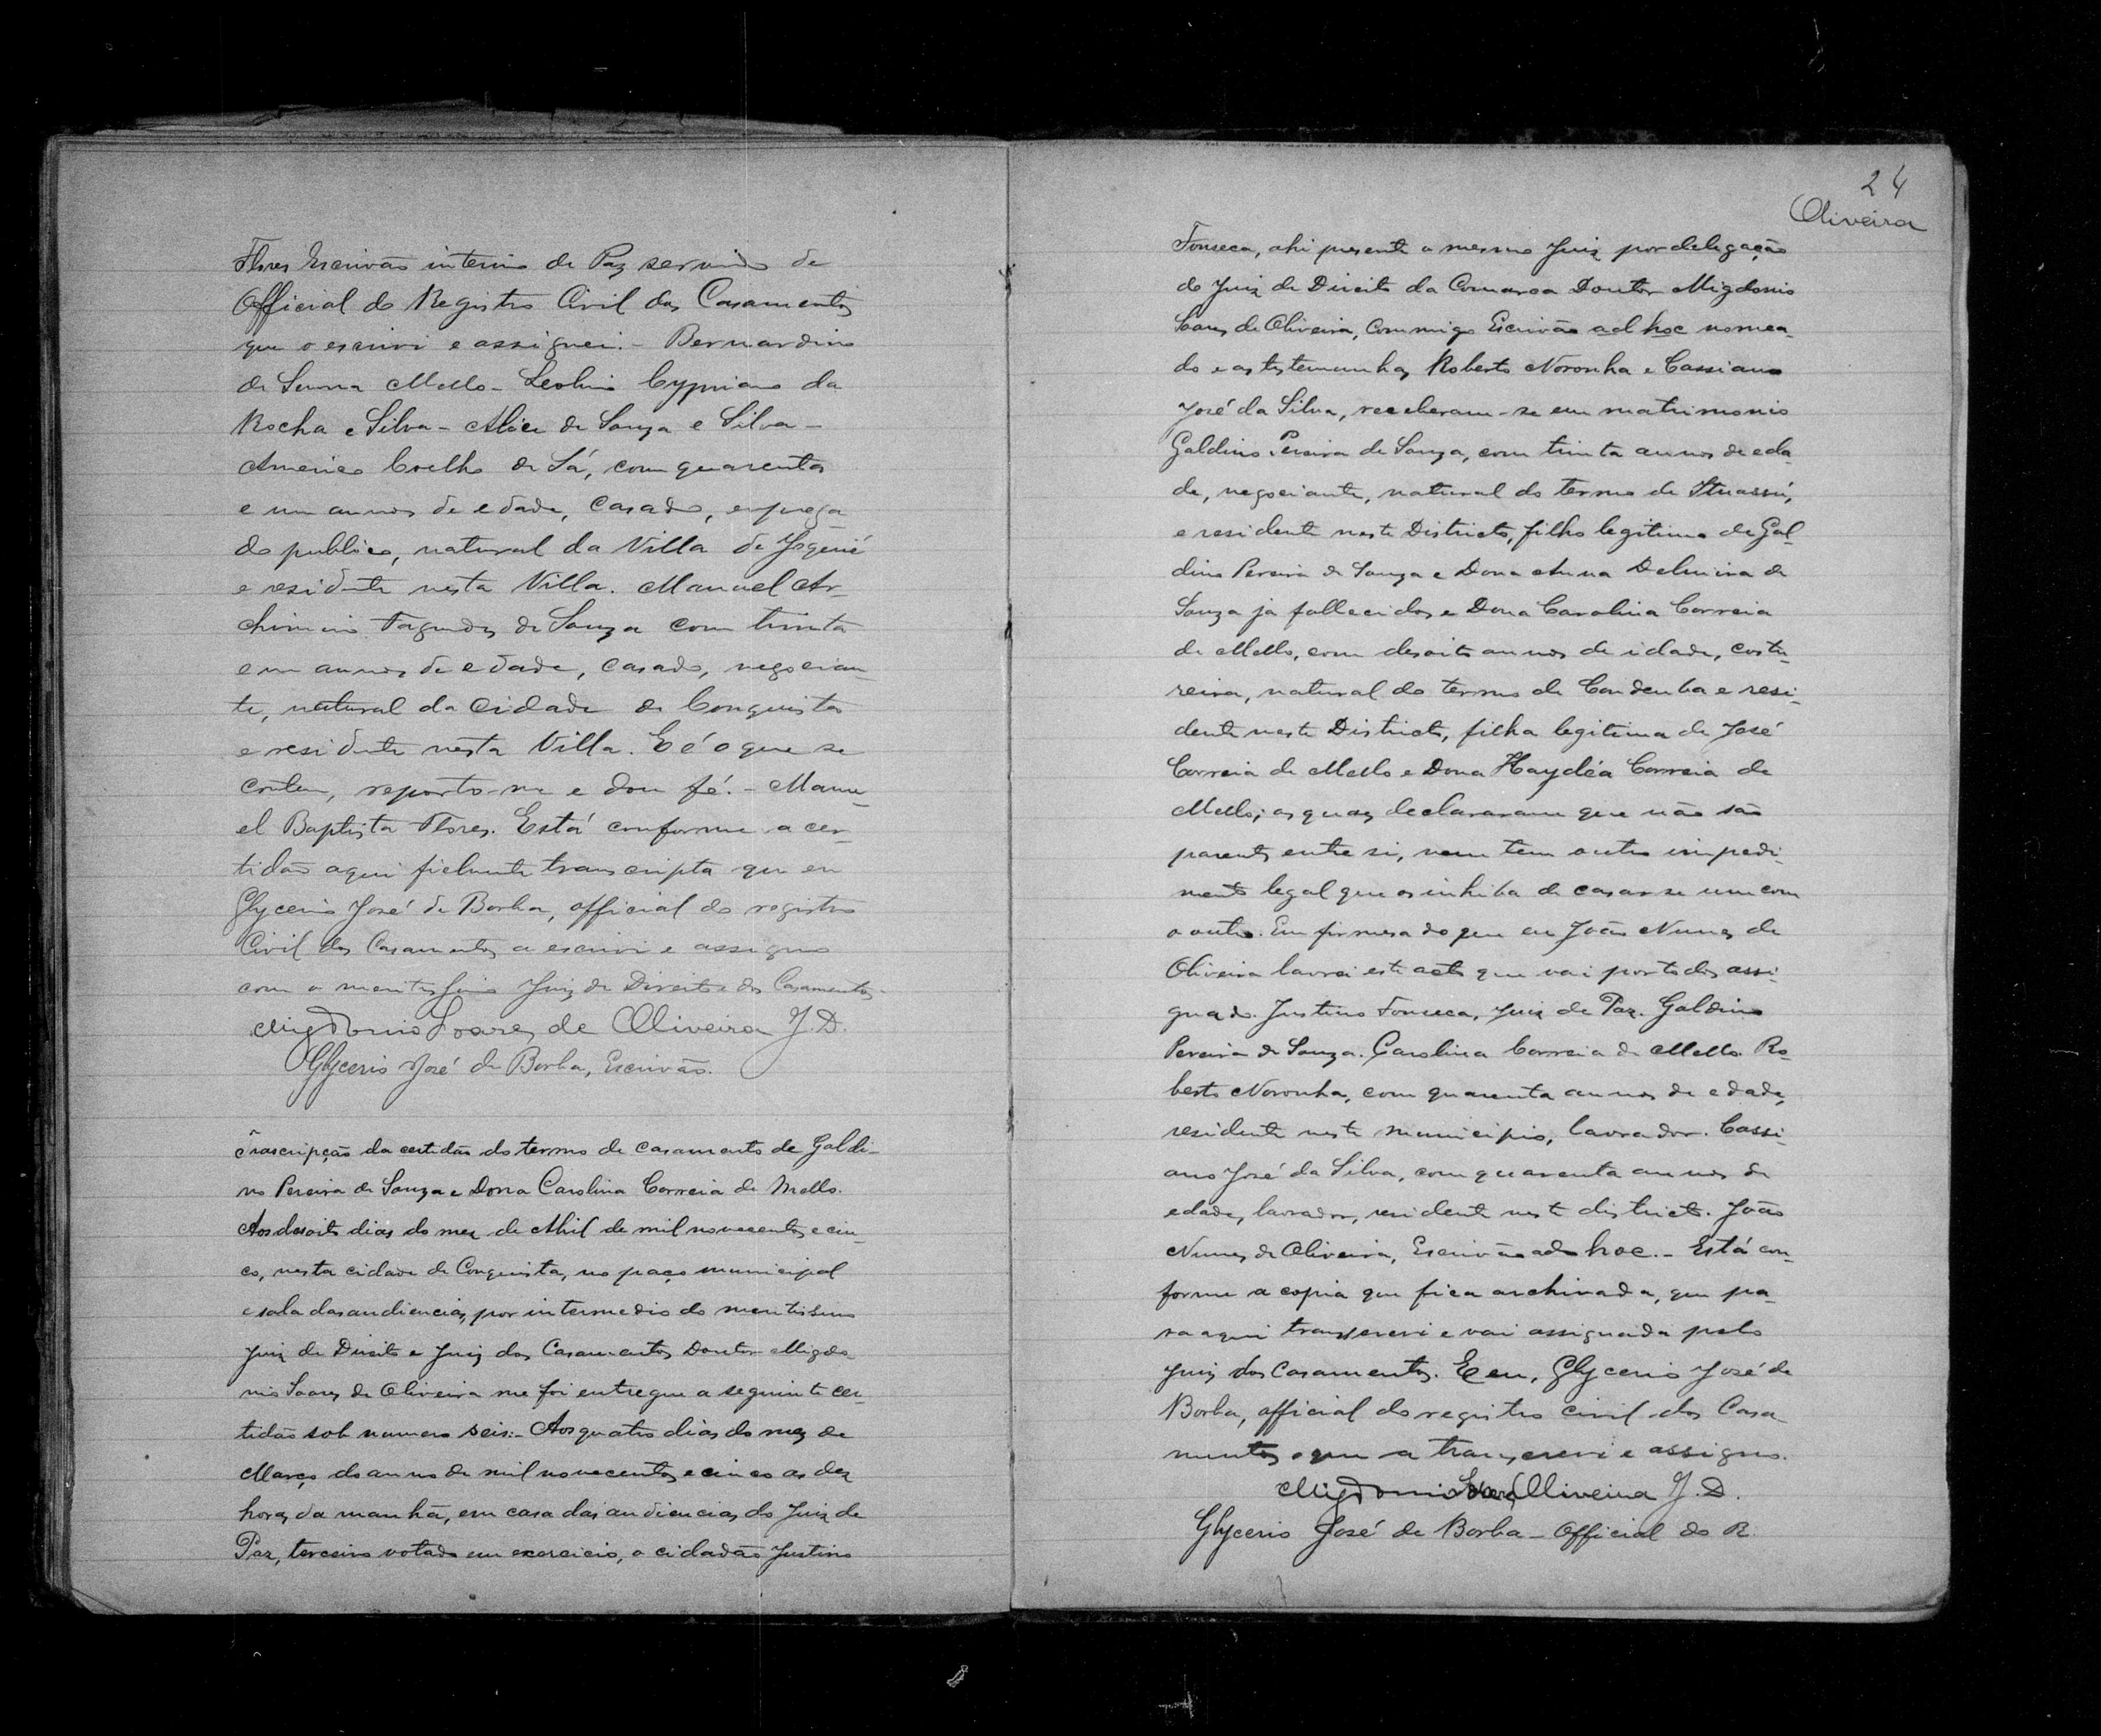 Flores Escrivão interino de Paz servindo de
Official do Registro Civil dos Casamentos
que o escrivi e assignei. - Bernardino
de Senna Mello - Leolino Cypriano da
Rocha e Silva - Alice de Souza e Silva -
Americo Coelho de Sá, com quarenta
e um annos de edade, casado, emprega-
do publico, natural da Villa de Jequié
e residente nesta Villa. Manuel Ar-
chimino Fagundes de Souza com trinta
e um annos de edade, casado, negocian-
te, natural da cidade de Conquista
e residente nesta Villa. E é o que se
contem, reporto-me e dou fé. - Manu-
el Baptista Flores. Está conforme a cer-
tidão aqui fielmente transcripta que eu
Glycerio José de Borba, official do registro
Civil dos Casamentos a escrivi e assigno
com o meritissimo Juiz de Direito e dos Casamentos.
Migdonio Soares de Oliveira J. D.
Glycerio José de Borba, Escrivão.
Trascripção da certidão do termo de casamento de Galdi-
no Pereira de Souza e Dona Carolina Correia de Mello.
Aos desoito dias do mez de Abril de mil novecentos e cin-
co, nesta cidade de Conquista, no paço municipal
e sala das audiencias, por intermedio do meritissimo
Juiz de Direito e Juiz dos Casamentos Doutor Migdo-
nio Soares de Oliveira me foi entregue a seguinte cer-
tidão sob numero seis:- Aos quatro dias do mez de
Março do anno de mil novecentos e cinco as dez
horas da manhã, em casa das audiencias do Juiz de
Paz, terceiro votado em exercicio, o cidadão Justino
24
Oliveira
Fonseca, ahi presente o mesmo Juiz por delegação
do Juiz de Direito da Comarca Doutor Migdonio
Soares de Oliveira, commigo Escrivão ad hoc nomea-
do e as testemunhas Roberto Noronha e Cassiano
José da Silva, receberam-se em matrimonio
Galdino Pereira de Souza, com trinta annos de eda-
de, negociante, natural do termo de Ituassú,
e residente neste Districto, filho legitimo de Gal-
dino Pereira de Souza e Dona Anna Delmira de
Souza ja fallecidos e Dona Carolina Correia
de Mello, com desoito annos de idade, costu-
reira, natural do termo de Condeuba e resi-
dente neste Districto, filha legitima de José
Correia de Mello e Dona Haydéa Correia de
Mello; os quaes declararam que não são
parentes entre si, nem tem outro impedi-
mento legal que os inhiba de casar-se um com
o outro. Em firmesa do que eu João Nunes de
Oliveira lavrei este acto que vai por todos assi-
gnado. Justino Fonseca, Juiz de Paz. Galdino
Pereira de Souza. Carolina Correia de Mello. Ro-
berto Noronha, com quarenta annos de edade,
residente neste municipio, lavrador. Cassi-
ano José da Silva, com quarenta annos de
edade, lavrador, residente neste districto. João
Nunes de Oliveira, Escrivão ad hoc. - Está con-
forme a copia que fica archivada, que pa-
ra aqui transcrevi e vai assignada pelo
Juiz dos Casamentos. E eu, Glycerio José de
Borba, official do registro civil dos Casa-
mentos que a transcrevi e assigno.
Migdonio Soares Oliveira J. D.
Glycerio José de Borba - Official do R.